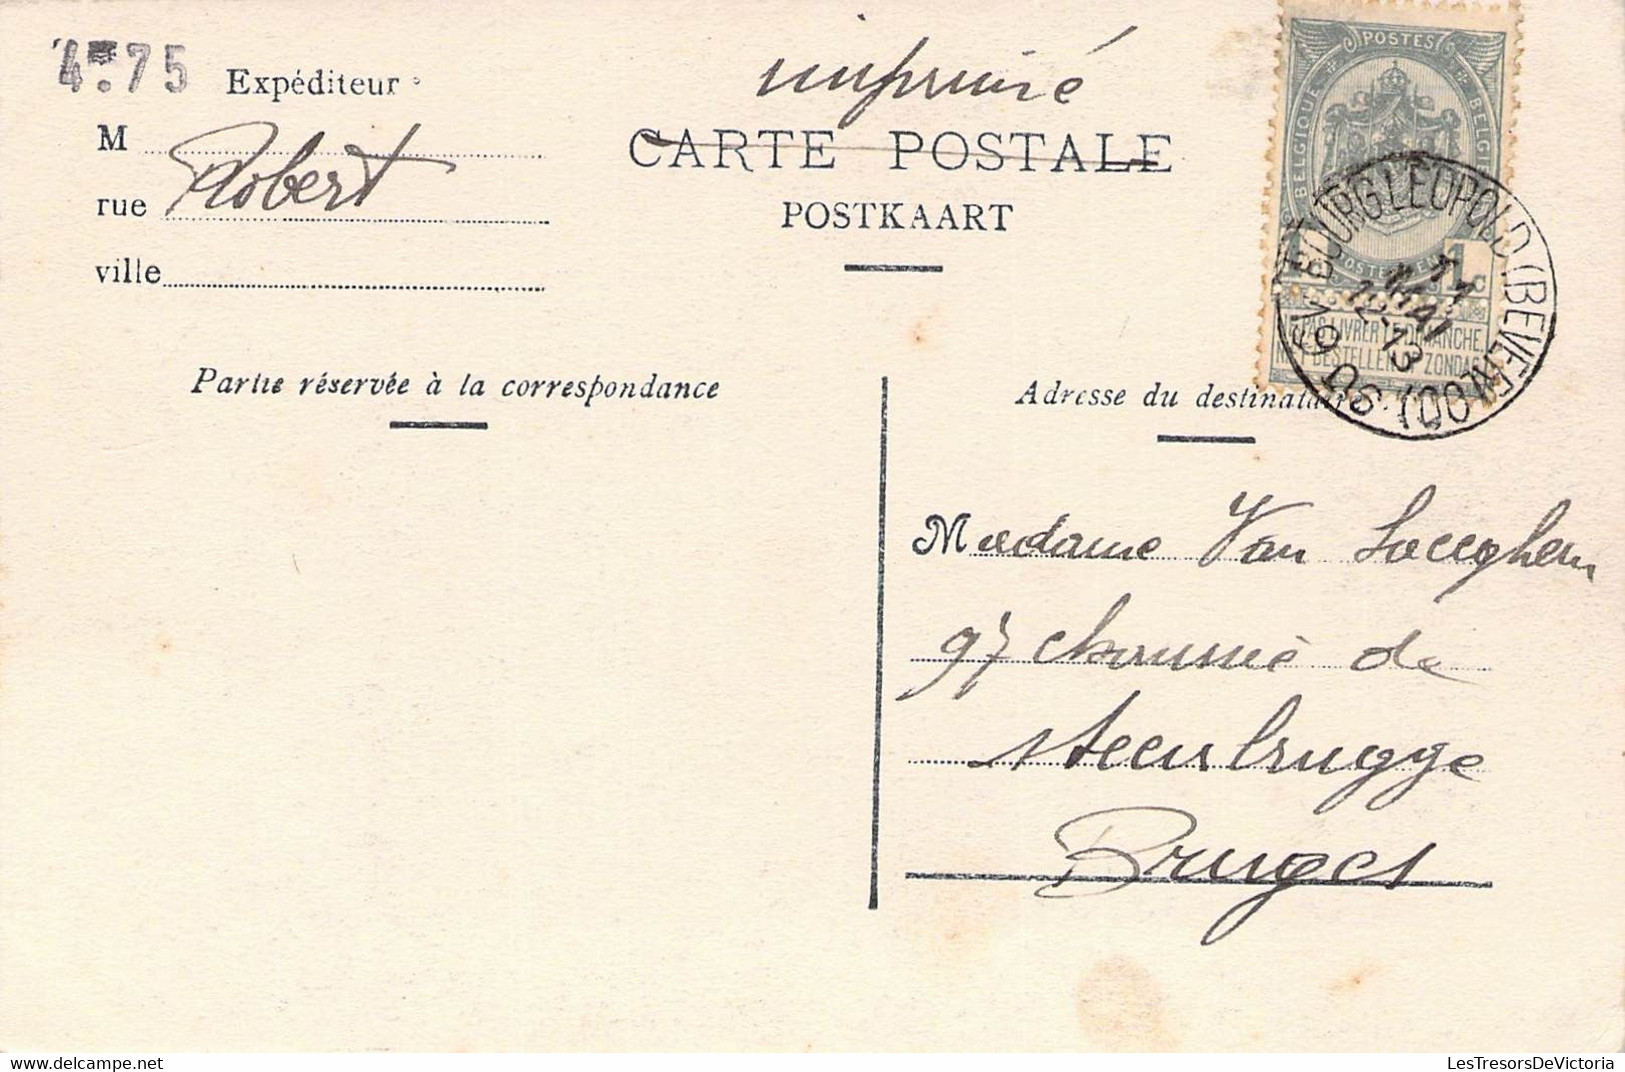 4.75
Expéditeur :
M Robert
rue
ville
imprimé
CARTE POSTALE
POSTKAART
POSTES
BELGIQUE
BELGIË
1 1c
NE PAS LIVRER LE DIMANCHE.
NIET BESTELLEN OP ZONDAG
BOURG LEOPOLD (BEVERLOO)
MAI
12-13
Partie réservée à la correspondance
Adresse du destinataire.
Madame Van
97 chaussée de
Steenbrugge
Bruges
LesTresorsDeVictoria